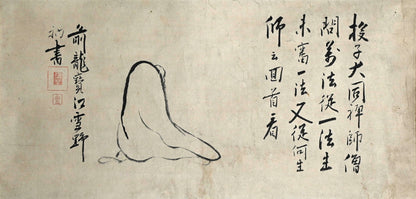 投子大同禅師僧
問萬法從一法生
未審一法又從何生
師云回首看
前龍寳江雪野
衲書